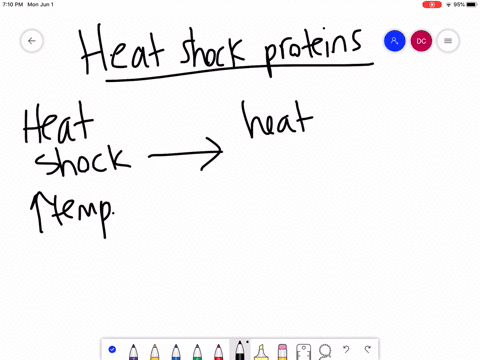 7:10 PM Mon Jun 1
95%
DC
Heat shock proteins
Heat
shock → heat
↑temp.